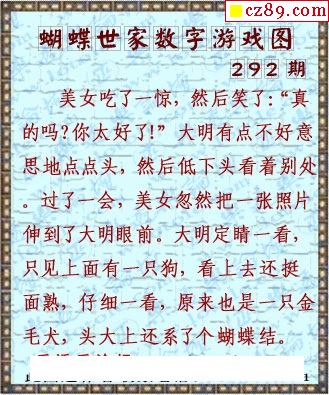 cz89.com
蝴蝶世家数字游戏图
292期
美女吃了一惊，然后笑了:“真
的吗?你太好了!”大明有点不好意
思地点点头，然后低下头看着别处
。过了一会，美女忽然把一张照片
伸到了大明眼前。大明定睛一看，
只见上面有一只狗，看上去还挺
面熟，仔细一看，原来也是一只金
毛犬，头大上还系了个蝴蝶结。